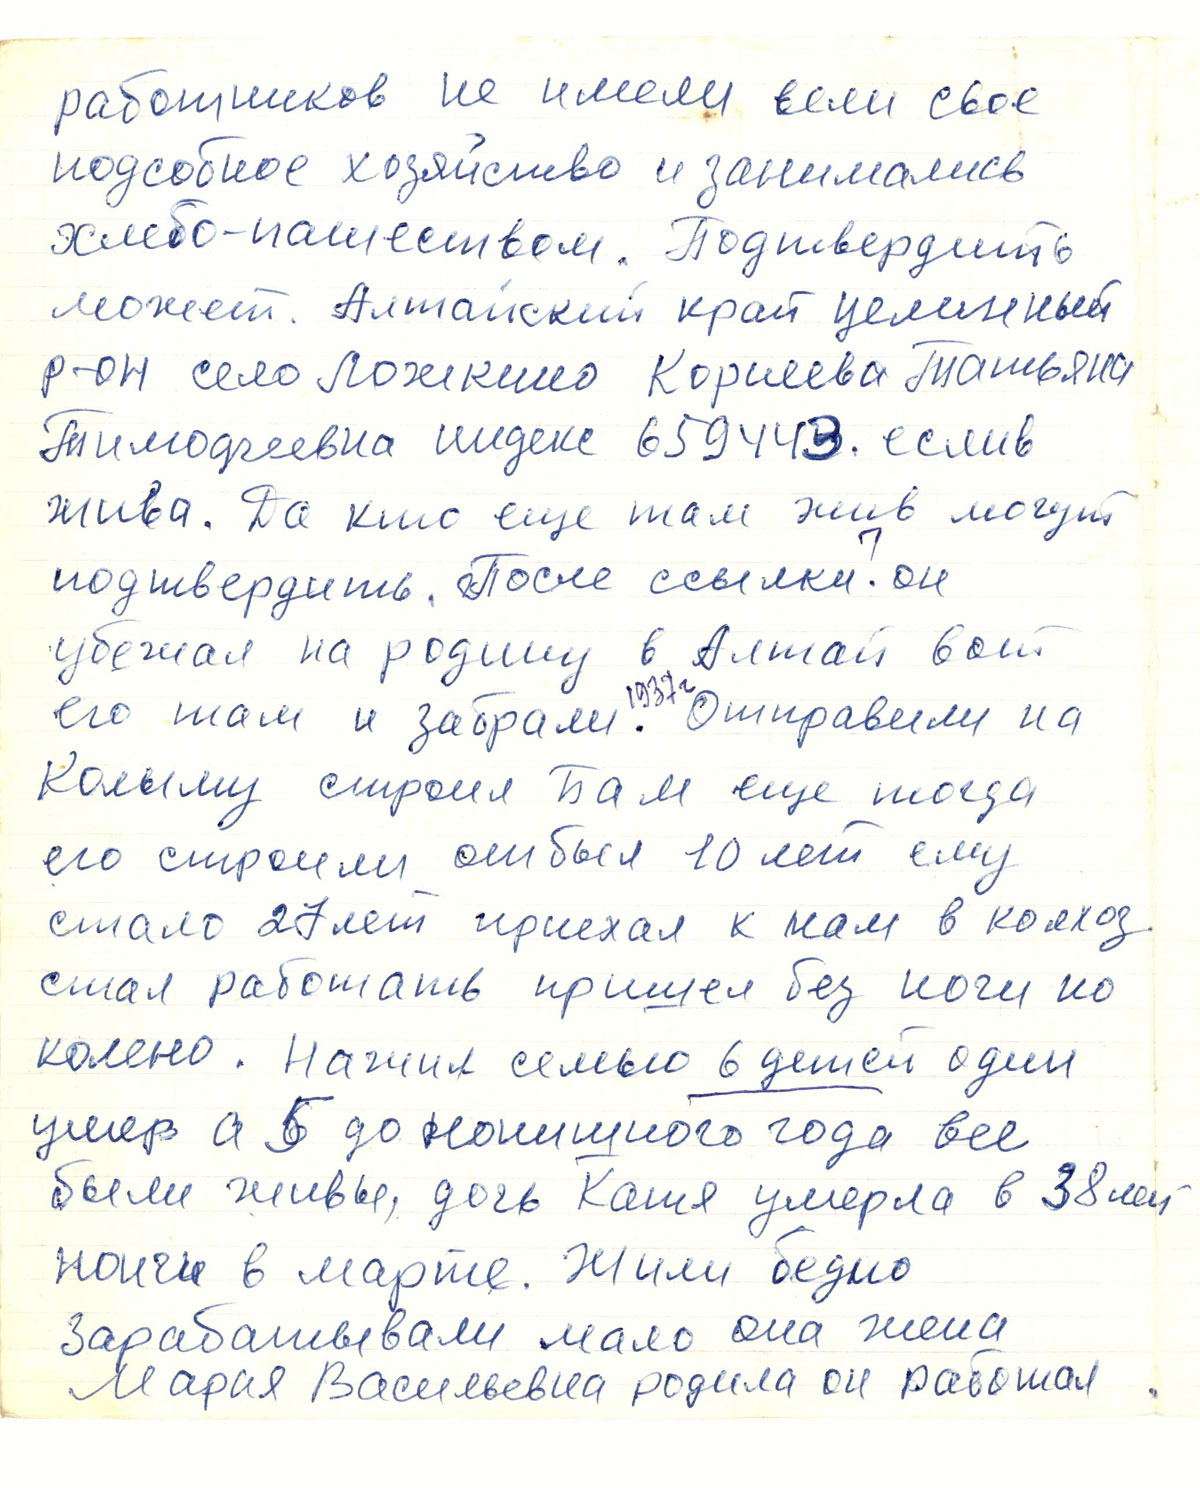 работников не имели вели свое
подсобное хозяйство и занимались
хлебо-пашеством. Подтвердить
может. Алтайский край целинный
р-он село Ложкино Корнева Татьяна
Тимофеевна индекс 659443. еслив
жива. Да кто еще там жив могут
подтвердить. После ссылки? он
убежал на родину в Алтай вот
его там и забрали. 1937г Отправили на
Колыму строил Бам еще тогда
его строили отбыл 10 лет ему
стало 27 лет приехал к нам в колхоз
стал работать пришел без ноги по
колено. Нажил семью 6 детей один
умер а 5 до нонишного года все
были живы, дочь Катя умерла в 38 лет
нончи в марте. Жили бедно
Зарабатывали мало она жена
Мария Васильевна родила он работал.